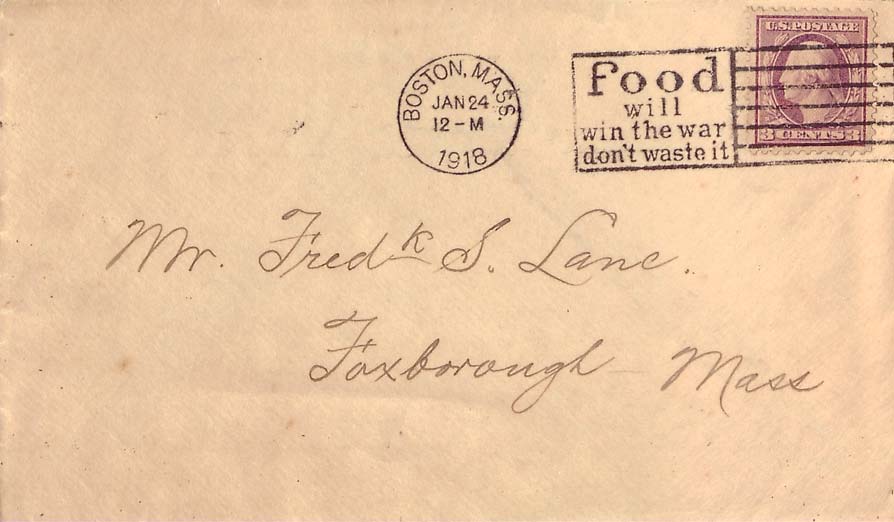 BOSTON, MASS.
JAN 24
12-M
1918
Food
will
win the war
don't waste it
U.S. POSTAGE
3 CENTS 3
Mr. Fredk S. Lane.
Foxborough - Mass